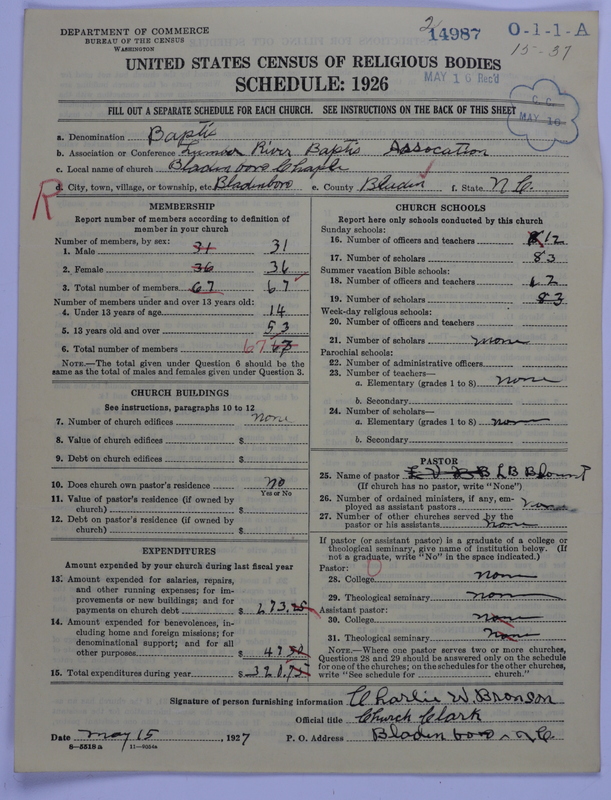 DEPARTMENT OF COMMERCE
BUREAU OF THE CENSUS
WASHINGTON
2
14987
O-1-1-A
15-37
UNITED STATES CENSUS OF RELIGIOUS BODIES
MAY 16 Rec'd
SCHEDULE: 1926
C. C.
MAY 16
FILL OUT A SEPARATE SCHEDULE FOR EACH CHURCH. SEE INSTRUCTIONS ON THE BACK OF THIS SHEET
a. Denomination Baptis
b. Association or Conference Lumber River Baptis Assocation
c. Local name of church Bladenboro Chaple
R
d. City, town, village, or township, etc. Bladenboro e. County Bladen f. State N C.
MEMBERSHIP
Report number of members according to definition of
member in your church
Number of members, by sex:
1. Male 31 31
2. Female 36 36
3. Total number of members 67 67
Number of members under and over 13 years old:
4. Under 13 years of age 14
5. 13 years old and over 53
6. Total number of members 67
NOTE.—The total given under Question 6 should be the
same as the total of males and females given under Question 3.
CHURCH BUILDINGS
See instructions, paragraphs 10 to 12
7. Number of church edifices None
8. Value of church edifices $
9. Debt on church edifices $
10. Does church own pastor's residence no
Yes or No
11. Value of pastor's residence (if owned by
church) $
12. Debt on pastor's residence (if owned by
church) $
EXPENDITURES
Amount expended by your church during last fiscal year
13. Amount expended for salaries, repairs,
and other running expenses; for im-
provements or new buildings; and for
payments on church debt $ 273.25
14. Amount expended for benevolences, in-
cluding home and foreign missions; for
denominational support; and for all
other purposes $ 47.50
15. Total expenditures during year $ 320.75
CHURCH SCHOOLS
Report here only schools conducted by this church
Sunday schools:
16. Number of officers and teachers 12
17. Number of scholars 83
Summer vacation Bible schools:
18. Number of officers and teachers 12
19. Number of scholars 83
Week-day religious schools:
20. Number of officers and teachers
21. Number of scholars none
Parochial schools:
22. Number of administrative officers
23. Number of teachers—
a. Elementary (grades 1 to 8) none
b. Secondary
24. Number of scholars—
a. Elementary (grades 1 to 8) none
b. Secondary
PASTOR
25. Name of pastor L B Blount
(If church has no pastor, write "None")
26. Number of ordained ministers, if any, em-
ployed as assistant pastors none
27. Number of other churches served by the
pastor or his assistants none
If pastor (or assistant pastor) is a graduate of a college or
theological seminary, give name of institution below. (If
not a graduate, write "No" in the space indicated.)
Pastor:
28. College none
29. Theological seminary none
Assistant pastor:
30. College none
31. Theological seminary none
NOTE.—Where one pastor serves two or more churches,
Questions 28 and 29 should be answered only on the schedule
for one of the churches; on the schedules for the other churches,
write "See schedule for church."
Signature of person furnishing information Charlie W. Bronson
Official title Church Clark
Date may 15, 1927 P. O. Address Bladenboro N C.
8—5518 a 11—9554a